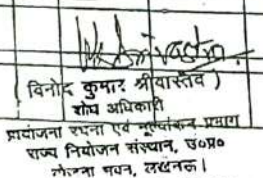 ( विनोद कुमार श्रीवास्तव )
शोध अधिकारी
प्रायोजना रचना एवं मूल्यांकन प्रभाग
राज्य नियोजन संस्थान, उ०प्र०
योजना भवन, लखनऊ।